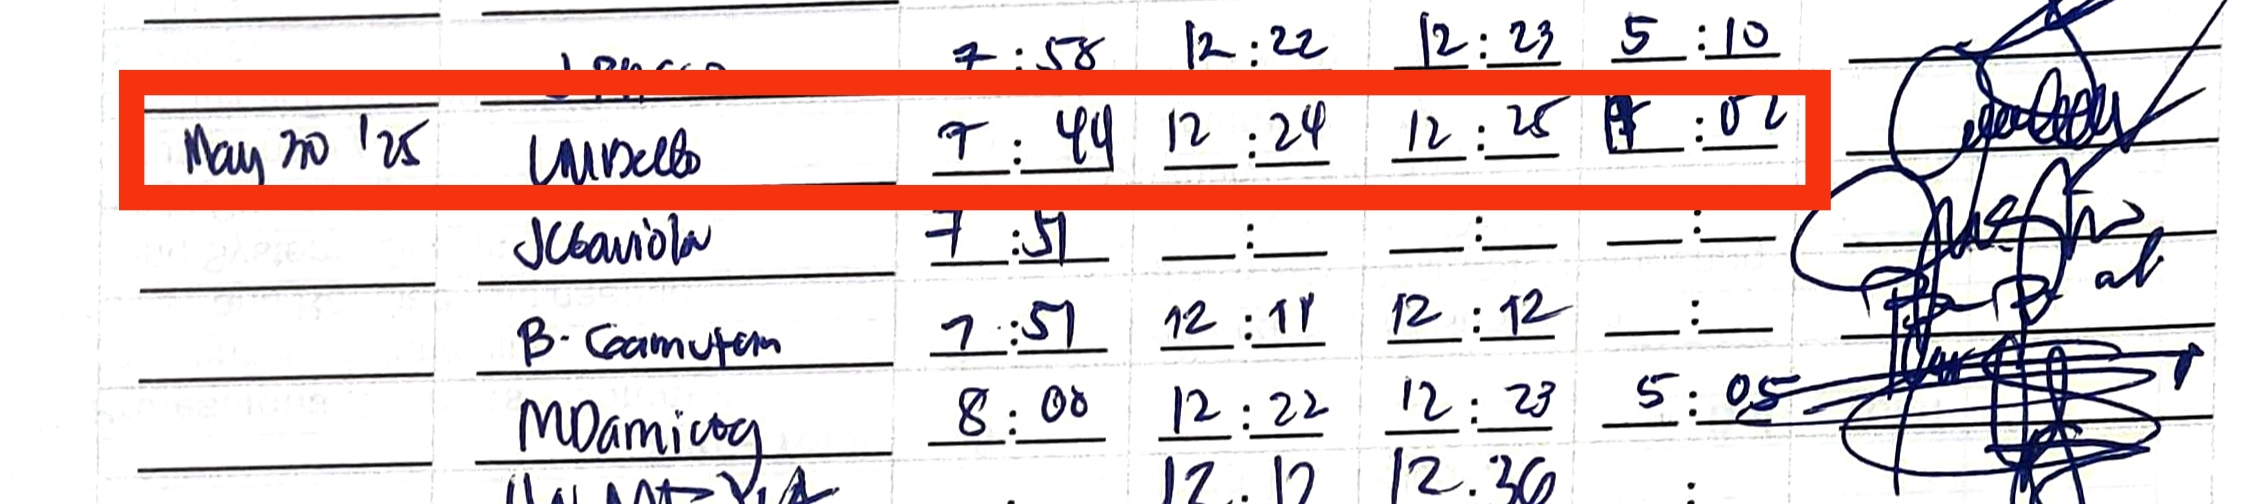 7:58 12:22 12:23 5:10
May 30 '25 LMBello 7:44 12:24 12:25 5:02
JCGaviola 7:51 __:__ __:__ __:__
B. Caamutan 7:51 12:11 12:12 __:__
MDamicog 8:00 12:22 12:23 5:05
12:12 12:36